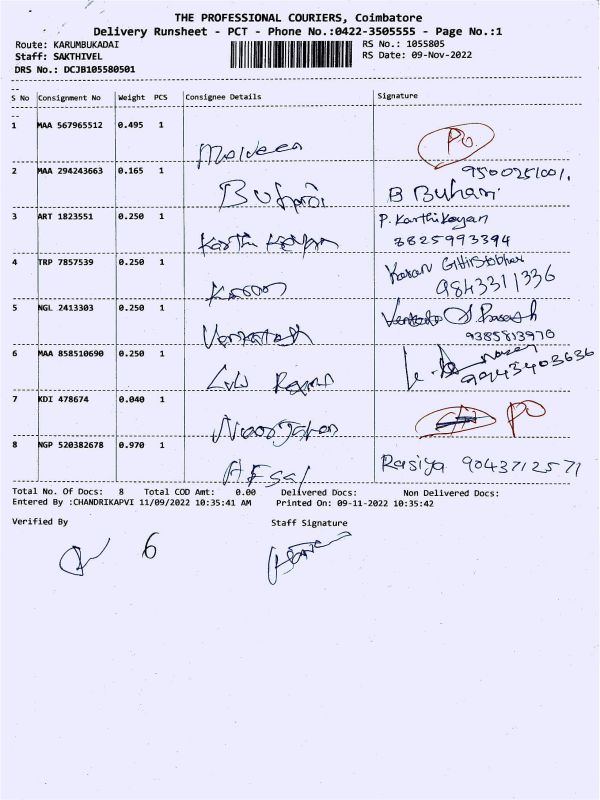 THE PROFESSIONAL COURIERS, Coimbatore
Delivery Runsheet - PCT - Phone No.:0422-3505555 - Page No.:1
Route: KARUMBUKADAI RS No.: 1055805
Staff: SAKTHIVEL RS Date: 09-Nov-2022
DRS No.: DCJB105580501
S No Consignment No Weight PCS Consignee Details Signature
1 MAA 567965512 0.495 1 PO
2 MAA 294243663 0.165 1 9500251001.
Buhari B Buhari
3 ART 1823551 0.250 1 P. Karthikeyan
Karthikeyan 8825993394
4 TRP 7857539 0.250 1 Karan
9843311336
5 NGL 2413303 0.250 1
Venkatesh 9385813970
6 MAA 858510690 0.250 1
9943403636
7 KDI 478674 0.040 1 PO
Noorjahan
8 NGP 520382678 0.970 1 Rasiya 9043712571
Afsal
Total No. Of Docs: 8 Total COD Amt: 0.00 Delivered Docs: Non Delivered Docs:
Entered By :CHANDRIKAPVI 11/09/2022 10:35:41 AM Printed On: 09-11-2022 10:35:42
Verified By Staff Signature
6